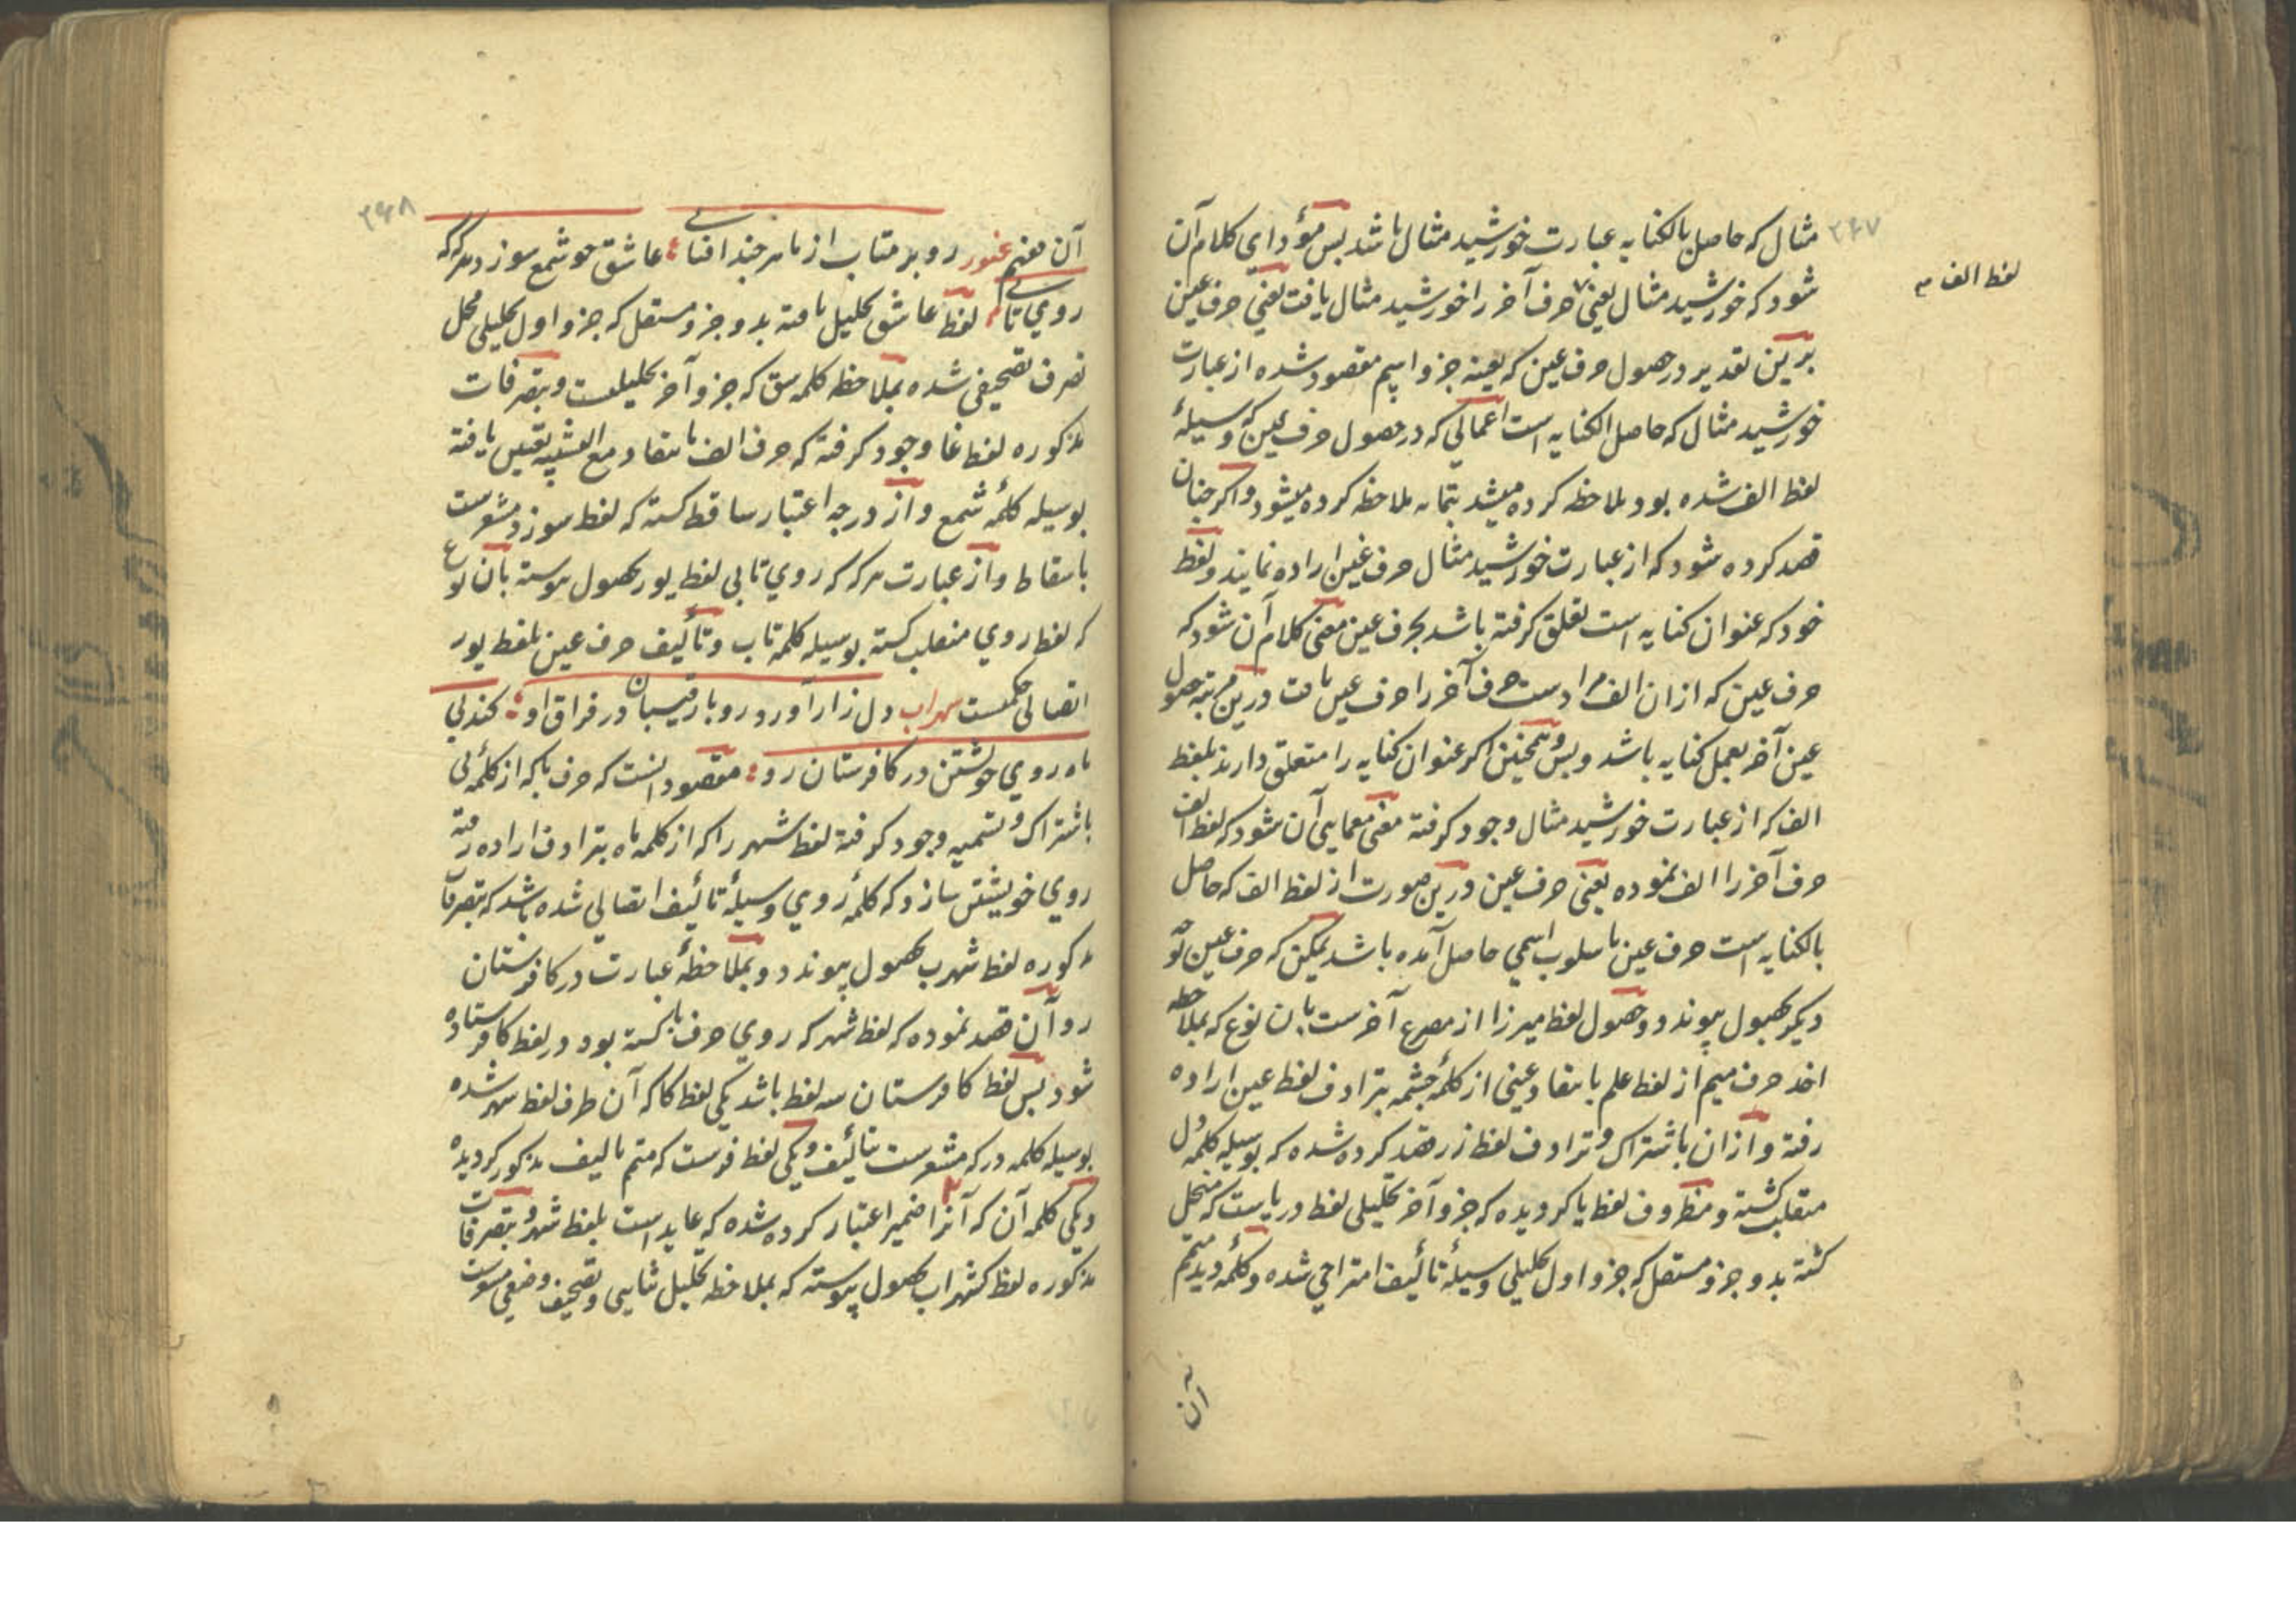 ۲۶۷
مثال که حاصل بالکنایه عبارت خورشید مثال باشد بس مؤدای کلام آن
شود که خورشید مثال یعنی حرف آخر را خورشید مثال یافت یعنی حرف عین
لفظ الف
برین تقدیر در حصول حرف عین که بعینه جزو اسم مقصود شده از عبارت
خورشید مثال که حاصل بالکنایه است اعمالی که در حصول حرف عین که وسیلۀ
لفظ الف شده بود ملاحظه کرده میشد بتمامه ملاحظه کرده میشود و اکر چنان
قصد کرده شود که از عبارت خورشید مثال حرف عین اراده نمایند و لفظ
خود که عنوان کنایه است تعلق کرفته باشد بحرف عین معنی کلام آن شود که
حرف عین که ازان الف مرادست حرف آخر را حرف عین یافت درین مرتبه حصول
عین آخر بعمل کنایه باشد و بس و همچنین اکر عنوان کنایه را متعلق دارند بلفظ
الف که از عبارت خورشید مثال وجود کرفته معنی معمایی آن شود که لفظ الف
حرف آخر را الف نموده یعنی حرف عین درین صورت از لفظ الف که حاصل
بالکنایه است حرف عین باسلوب اسمی حاصل آمده باشد یمکن که حرف عین
دیکر بحصول پیوندد و حصول لفظ میرزا از مصرع آخرست بان نوع که بملاحظه
اخذ حرف میم از لفظ علم بانتقاد عینی از کلمۀ چشمه بترادف لفظ عین اراده
رفته و ازان باشتراک و ترادف لفظ زر قصد کرده شده که بوسیله کلمۀ دل
منقلب کشته و مظروف لفظ یا کردیده که جزو آخر تحلیلی لفظ دریاست که منحل
کشته بدو جزو مستقل که جزو اول تحلیلی وسیلۀ تألیف امتزاجی شده و کلمۀ دید متمم
آن
۲۶۸
آن معنی غنور رو بر متاب از ما هر چند افتابی عاشق چو شمع سوزد هر که که
روی تابی لفظ عاشق تحلیل یافته بدو جزو مستقل که جزو اول تحلیلی محل
تصرف تصحیفی شده بملاحظه کلمه سق که جزو آخر تحلیلیست و بتصرفات
مذکوره لفظ غا وجود کرفته که حرف الف بانتقاد مع التشبیه تعیین یافته
بوسیله کلمۀ شمع و از درجه اعتبار ساقط کشته که لفظ سوزد مشعرست
باسقاط و از عبارت هر که که روی تابی لفظ یور بحصول پیوسته بان نوع
که لفظ روی منقلب کشته بوسیله کلمه تاب و تألیف حرف عین بلفظ یور
اتصالی حکمیست سهراب دل زار آورد رو با رقیبان در فراق او کندلی
ماه روی خویشتن در کافرستان رو مقصود انست که حرف با که از کلمۀ لی
باشتراک و تسمیه وجود کرفته لفظ شهر را که از کلمه ماه بترادف اراده رفته
روی خویشتن سازد که کلمۀ روی وسیلۀ تألیف اتصالی شده باشد که بتصرفات
مذکوره لفظ شهرب بحصول پیوندد و بملاحظۀ عبارت در کافرستان
رو آن قصد نموده که لفظ شهر که روی حرف با کشته بود در لفظ کا فرستاده
شود بس لفظ کافرستان سه لفظ باشد یکی لفظ کا که آن طرف لفظ شهر شده
بوسیله کلمه در که مشعرست بتألیف و یکی لفظ فرست که متمم تالیف مذکور کردیده
و یکی کلمه آن که آنرا ضمیر اعتبار کرده شده که عایدست بلفظ شهر و بتصرفات
مذکوره لفظ کشهراب بحصول پیوسته که بملاحظه تحلیل ثنایی و تصحیف وضعی